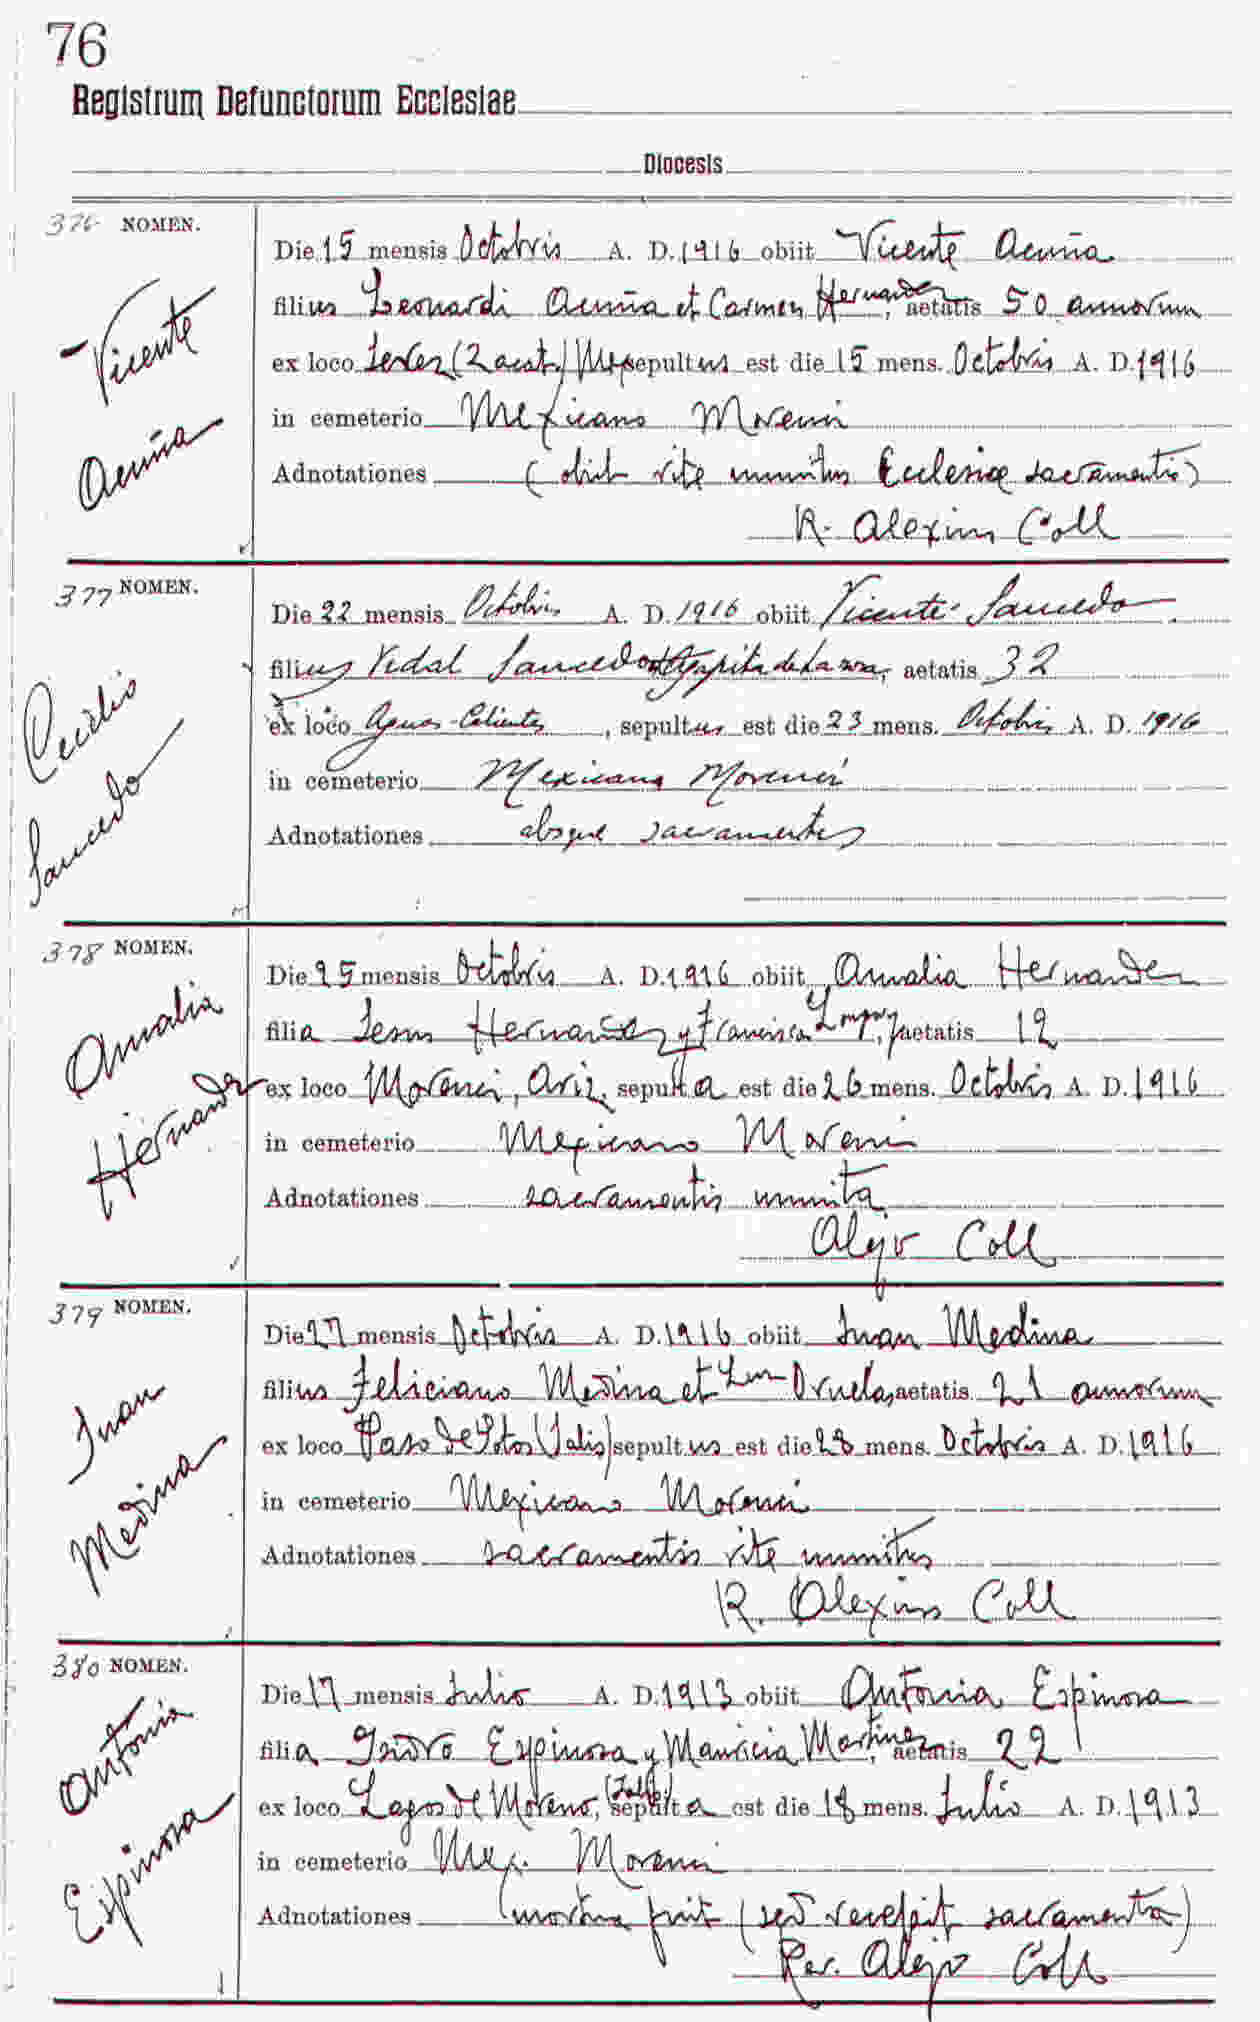 76
Registrum Defunctorum Ecclesiae
Diocesis
376 NOMEN.
Vicente
Acuña
Die 15 mensis Octobris A. D. 1916 obiit Vicente Acuña
filius Leonardi Acuña et Carmen Hernandez, aetatis 50 annorum
ex loco Jerez (Zacat.) Mex sepultus est die 15 mens. Octobris A. D. 1916
in cemeterio Mexicano Morenci
Adnotationes (obiit rite munitus Ecclesiae sacramentis)
R. Alexius Coll
377 NOMEN.
Cecilio
Saucedo
Die 22 mensis Octobris A. D. 1916 obiit Vicente Saucedo
filius Vidal Saucedo et Agapita de , aetatis 32
ex loco Aguas-Calientes, sepultus est die 23 mens. Octobris A. D. 1916
in cemeterio Mexicano Morenci
Adnotationes absque sacramentis
378 NOMEN.
Amalia
Hernandez
Die 25 mensis Octobris A. D. 1916 obiit Amalia Hernandez
filia Jesus Hernandez y Francisca , aetatis 12
ex loco Morenci, Ariz, sepulta est die 26 mens. Octobris A. D. 1916
in cemeterio Mexicano Morenci
Adnotationes sacramentis munita
Alejo Coll
379 NOMEN.
Juan
Medina
Die 27 mensis Octobris A. D. 1916 obiit Juan Medina
filius Feliciano Medina et Ornelas, aetatis 21 annorum
ex loco Paso de Sotos (Jalis) sepultus est die 28 mens. Octobris A. D. 1916
in cemeterio Mexicano Morenci
Adnotationes sacramentis rite munitus
R. Alexius Coll
380 NOMEN.
Antonia
Espinosa
Die 17 mensis Julio A. D. 1913 obiit Antonia Espinosa
filia Isidro Espinosa y Mauricia Martinez, aetatis 22
ex loco Lagos de Moreno, (Jalis) sepulta est die 18 mens. Julio A. D. 1913
in cemeterio Mex. Morenci
Adnotationes (mortua fuit (sed recepit sacramenta)
Rev. Alejo Coll